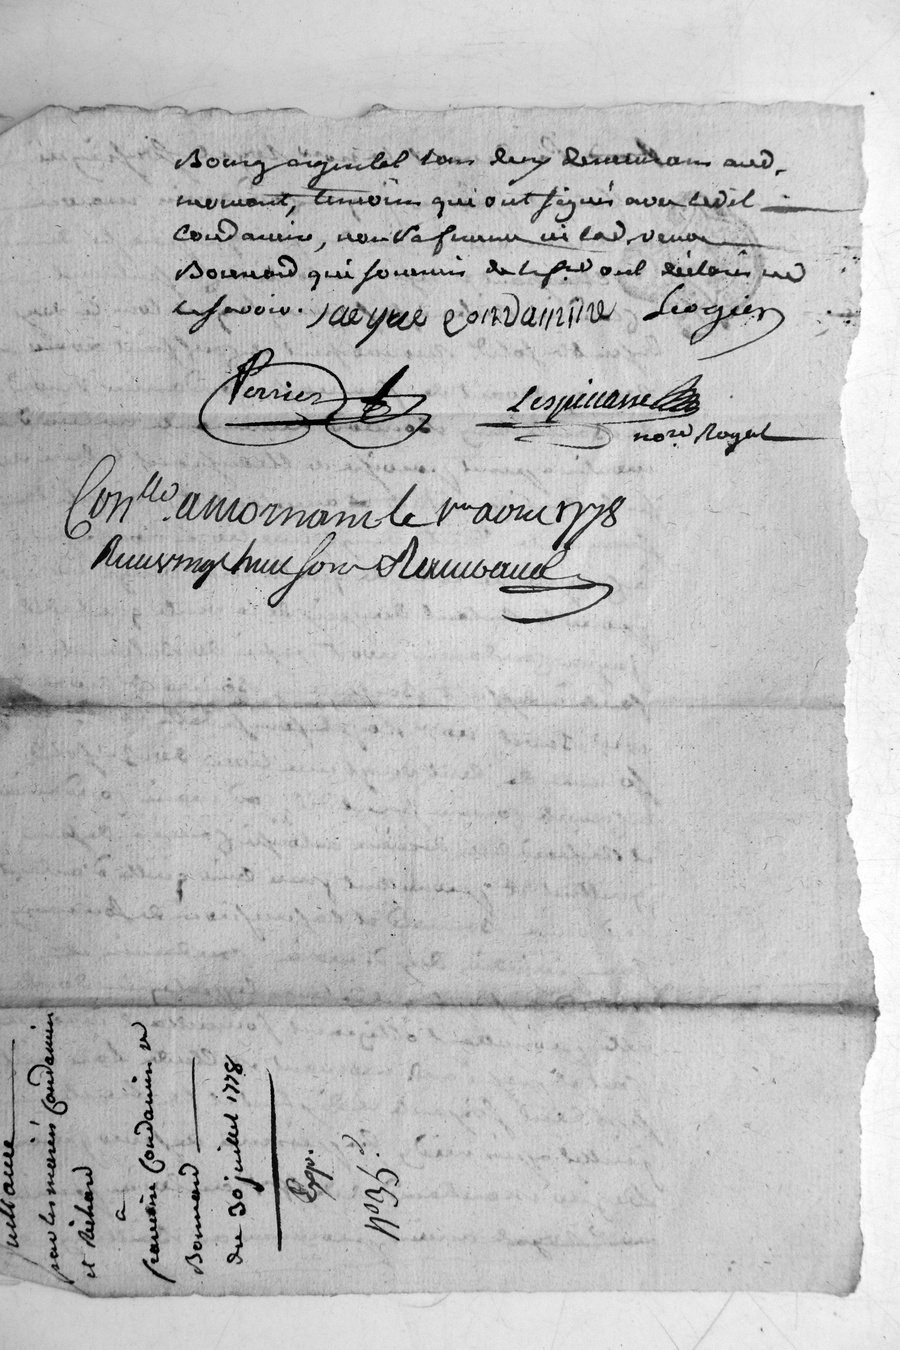 Bourg argental tous deux demeurans aud.
mornant, temoins qui ont signés avec ledit
Condamin, non la femme ni lad. veuve
Bonnard qui sommés de le fe ont déclarés ne
le savoir. Jacque condamine Liogier
Perrier
Lespinasse
no.re Royal
Con.llé a mornant le 1er aout 1778
Reçu vingt huit sous Raimbaud
quittance
par les mariés Condamin
et Richard
à
pierre Condamin et
Bonnard
du 30 juillet 1778
Exp.
N° 35